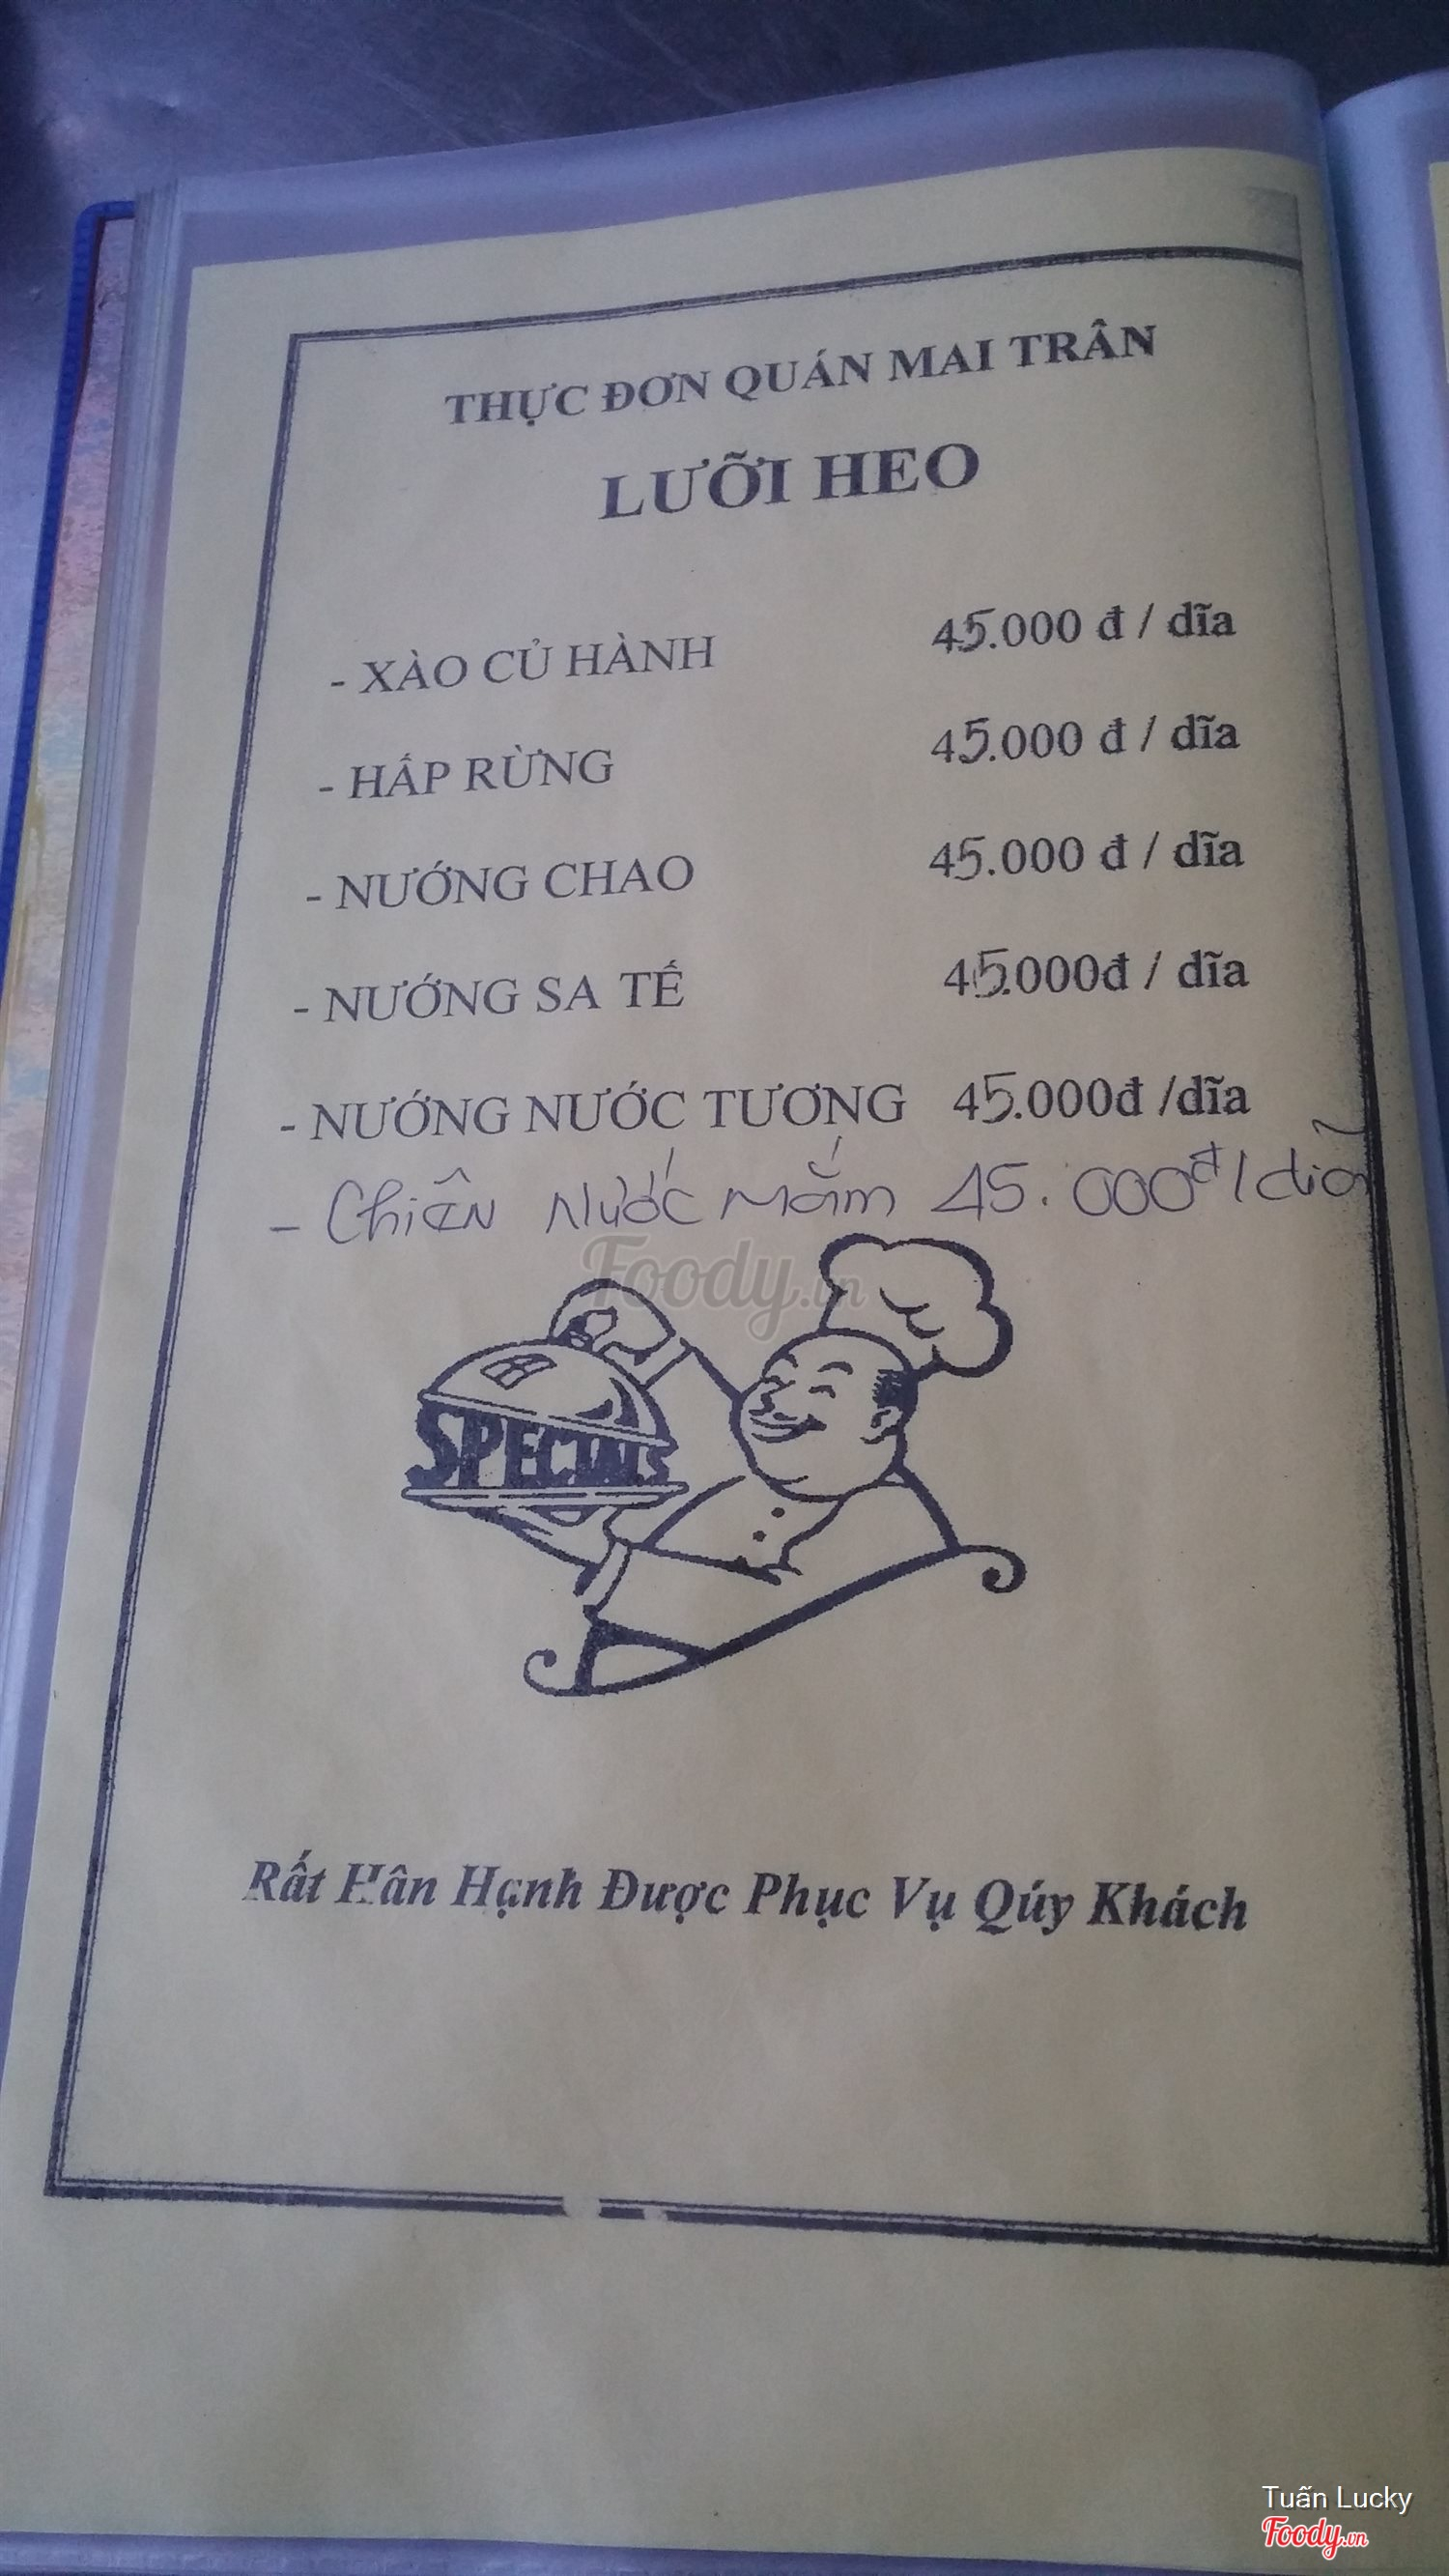 THỰC ĐƠN QUÁN MAI TRÂN
LƯỠI HEO
- XÀO CỦ HÀNH 45.000 đ / dĩa
- HẤP RỪNG 45.000 đ / dĩa
- NƯỚNG CHAO 45.000 đ / dĩa
- NƯỚNG SA TẾ 45.000đ / dĩa
- NƯỚNG NƯỚC TƯƠNG 45.000đ /dĩa
- Chiên Nước Mắm 45.000đ/dĩa
Foody.vn
SPECIALS
Rất Hân Hạnh Được Phục Vụ Qúy Khách
Tuấn Lucky
Foody.vn